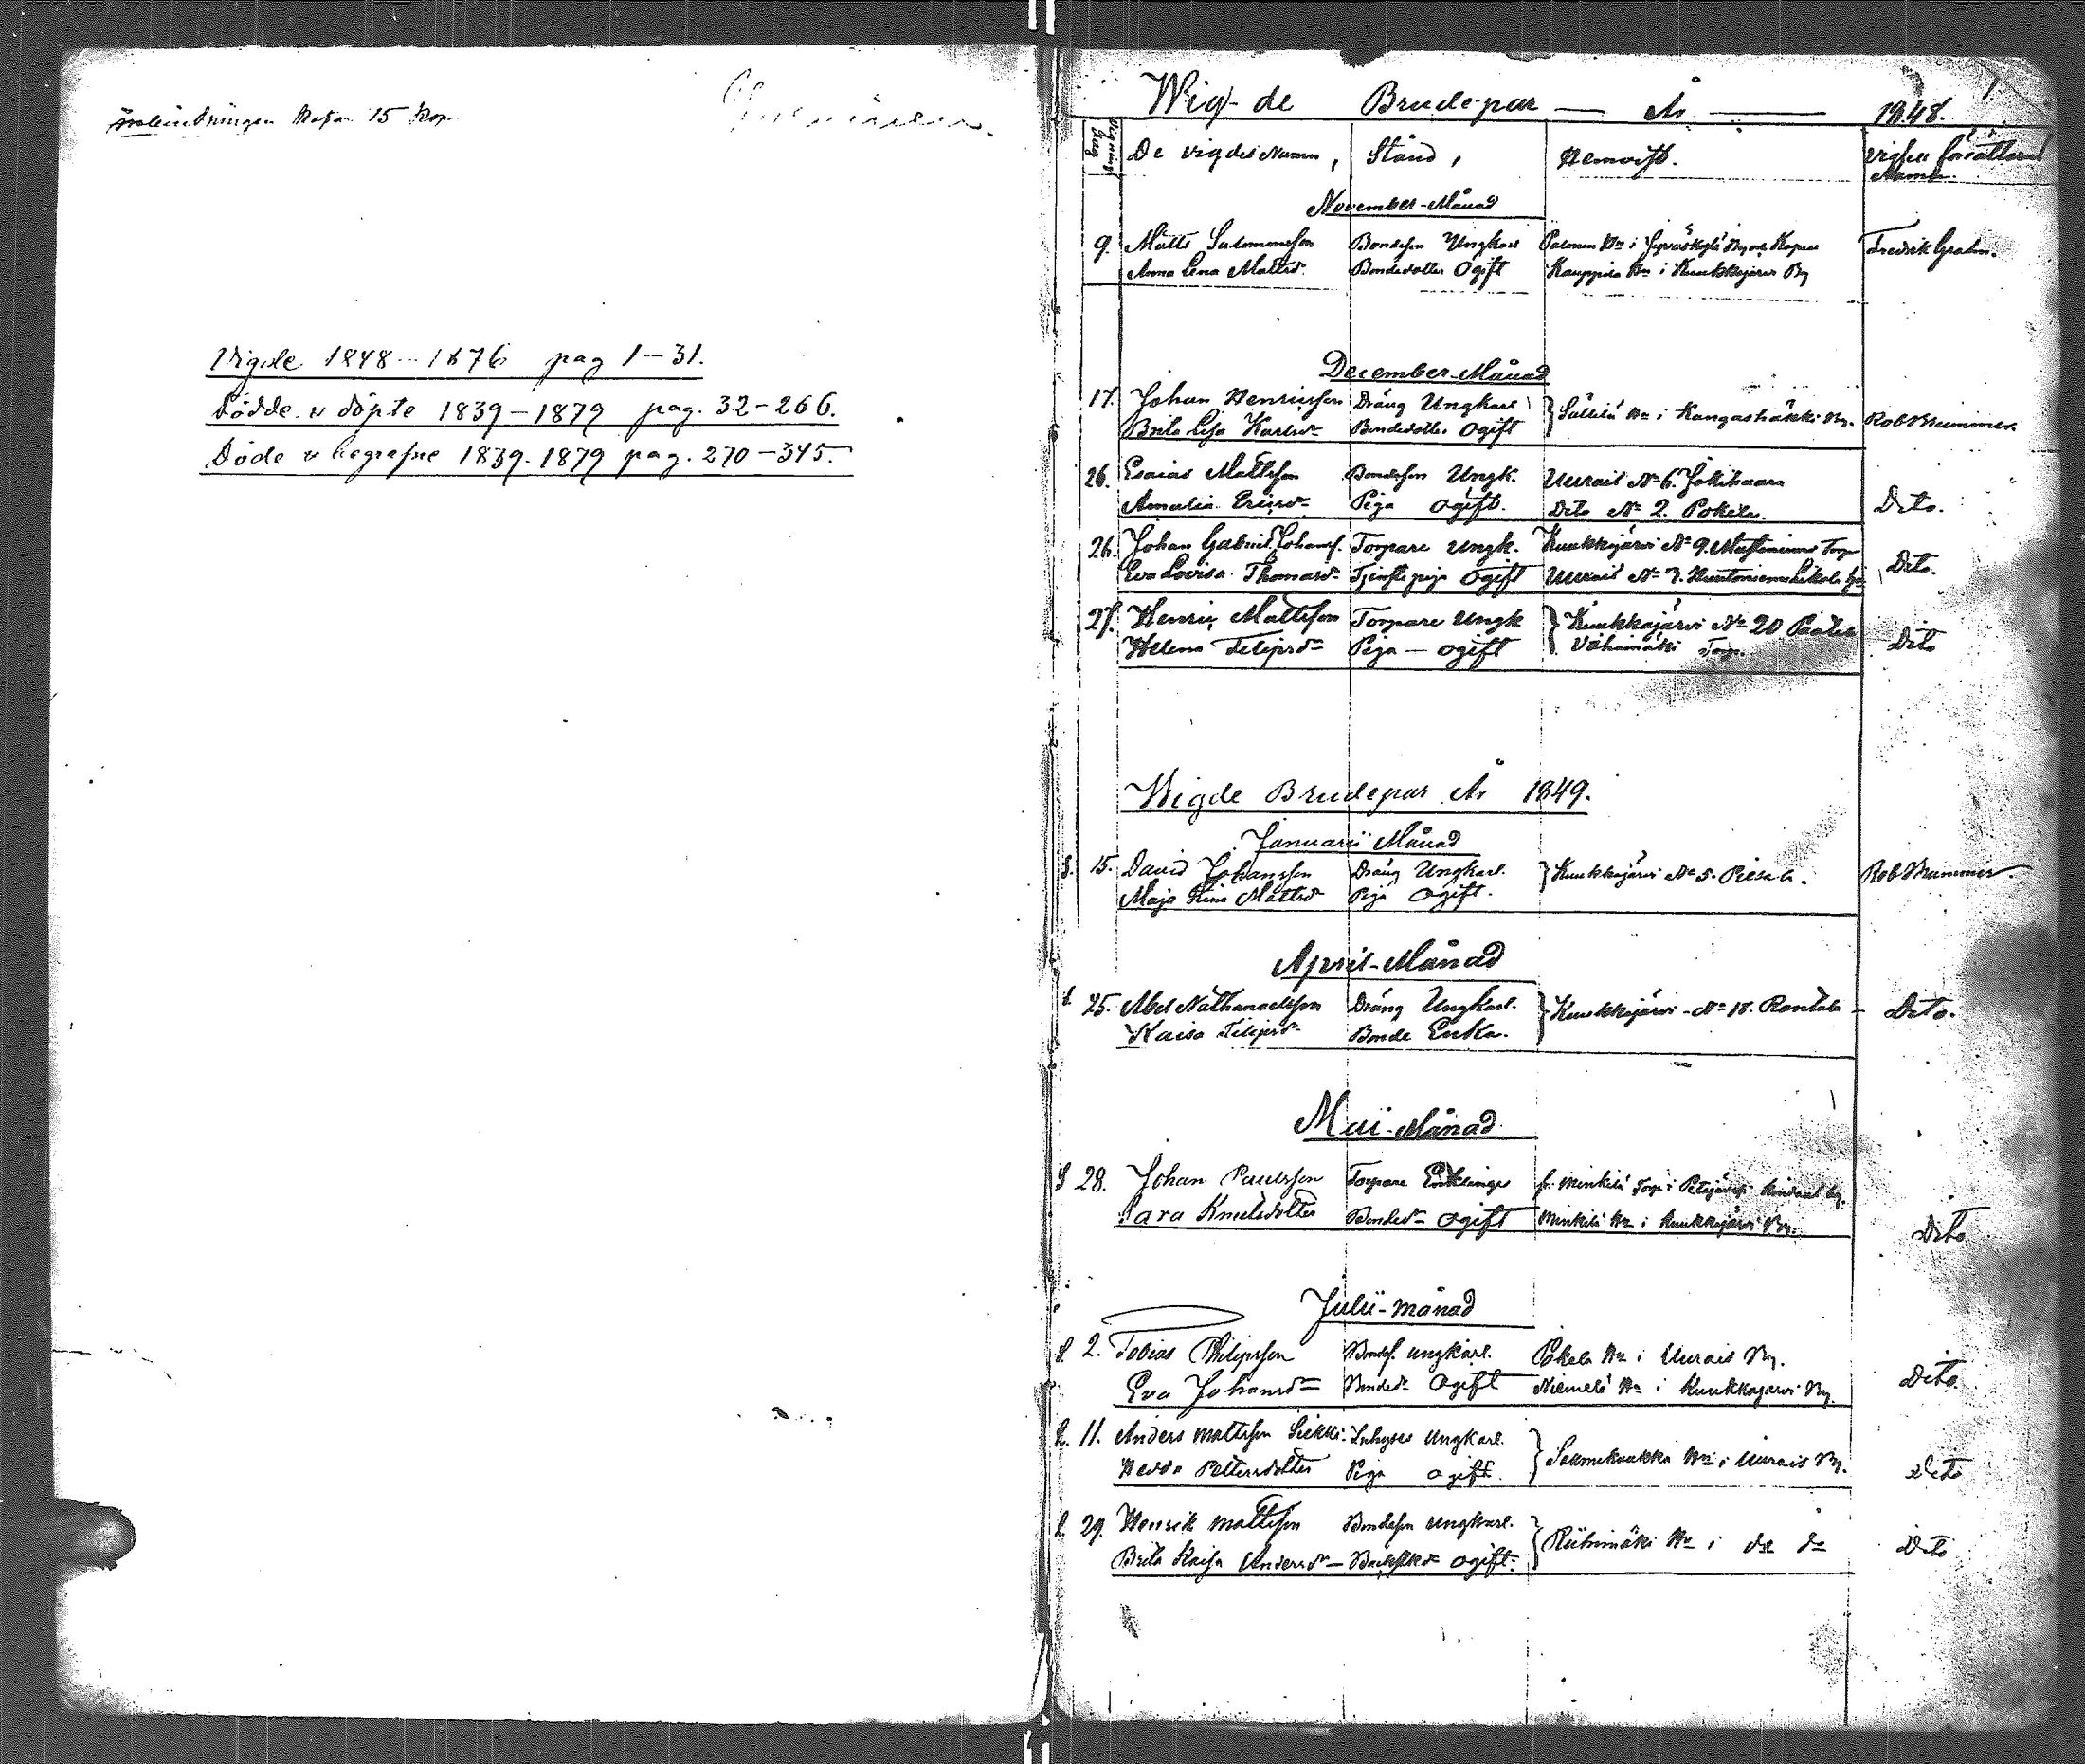 Inbindningen kostar 15 kop.
Vigde 1848-1876 pag 1-31.
Födde o döpte 1839-1879 pag. 32-266.
Döde o begrafne 1839-1879 pag. 270-345.
1.
Wig-de Brude-par — År — 1848.
Vignings dag De vigdes Namn, Stånd, Hemvist. Vigsel förrättarens Namn.
November-Månad
9. Matts Salomonsson Bondeson Ungkarl Hn i Jyväskylä By och Fredrik
Anna Lena Mattsdr Bondedotter Ogift Kauppila Hn i Kuukkajärvi By
December-Månad
17. Johan Henricsson Dräng Ungkarl } Hn i Kangashäkki By. Rob Brummer.
Brita Lisa Karlsdr Bondedotter Ogift
26. Esaias Mattsson Bondeson Ungk. Uurais No 6. Jokihaara Dito.
Amalia Ericsdr Piga Ogift. Dito No 2. Pokela.
26. Johan Gabriel Johanss. Torpare Ungk. Kuukkajärvi No 9. Torp Dito.
Eva Lovisa Thomasdr Tjenstepiga Ogift Uurais No 3.
27. Henric Mattsson Torpare Ungk } Kuukkajärvi No 20
Helena Filipsdr Piga — ogift Vähämäki Torp. Dito
Wigde Brudepar År 1849.
Januarii Månad
15. David Johansson Dräng Ungkarl. } Kuukkajärvi No 5. Piesala. Rob Brummer.
Maja Stina Mattsdr Piga Ogift.
April-Månad
25. Abel Nathanaelsson Dräng Ungkarl. } Kuukkajärvi No 18. Rantala Dito.
Kaisa Filipsdr Bonde Enka.
Maii-Månad
28. Johan Paulsson Torpare Enklinge fr. Minkilä Torp i Petäjävesi
Sara Knutsdotter Bondedr Ogift Minkilä Hn i Kuukkajärvi By. Dito
Julii-månad
2. Tobias Philipsson Bondes. ungkarl. Pokela Hn i Uurais By. Dito.
Eva Johansdr Bondedr Ogift Niemelä Hn i Kuukkajärvi By.
11. Anders Mattsson Siekki Inhyses Ungkarl. } Hn i Uurais By. Dito
Hedda Pettersdotter Piga ogift.
29. Henrik Mattsson Bondeson ungkarl. } Riihimäki Hn i do do Dito
Brita Kaisa Andersdr — ogift.